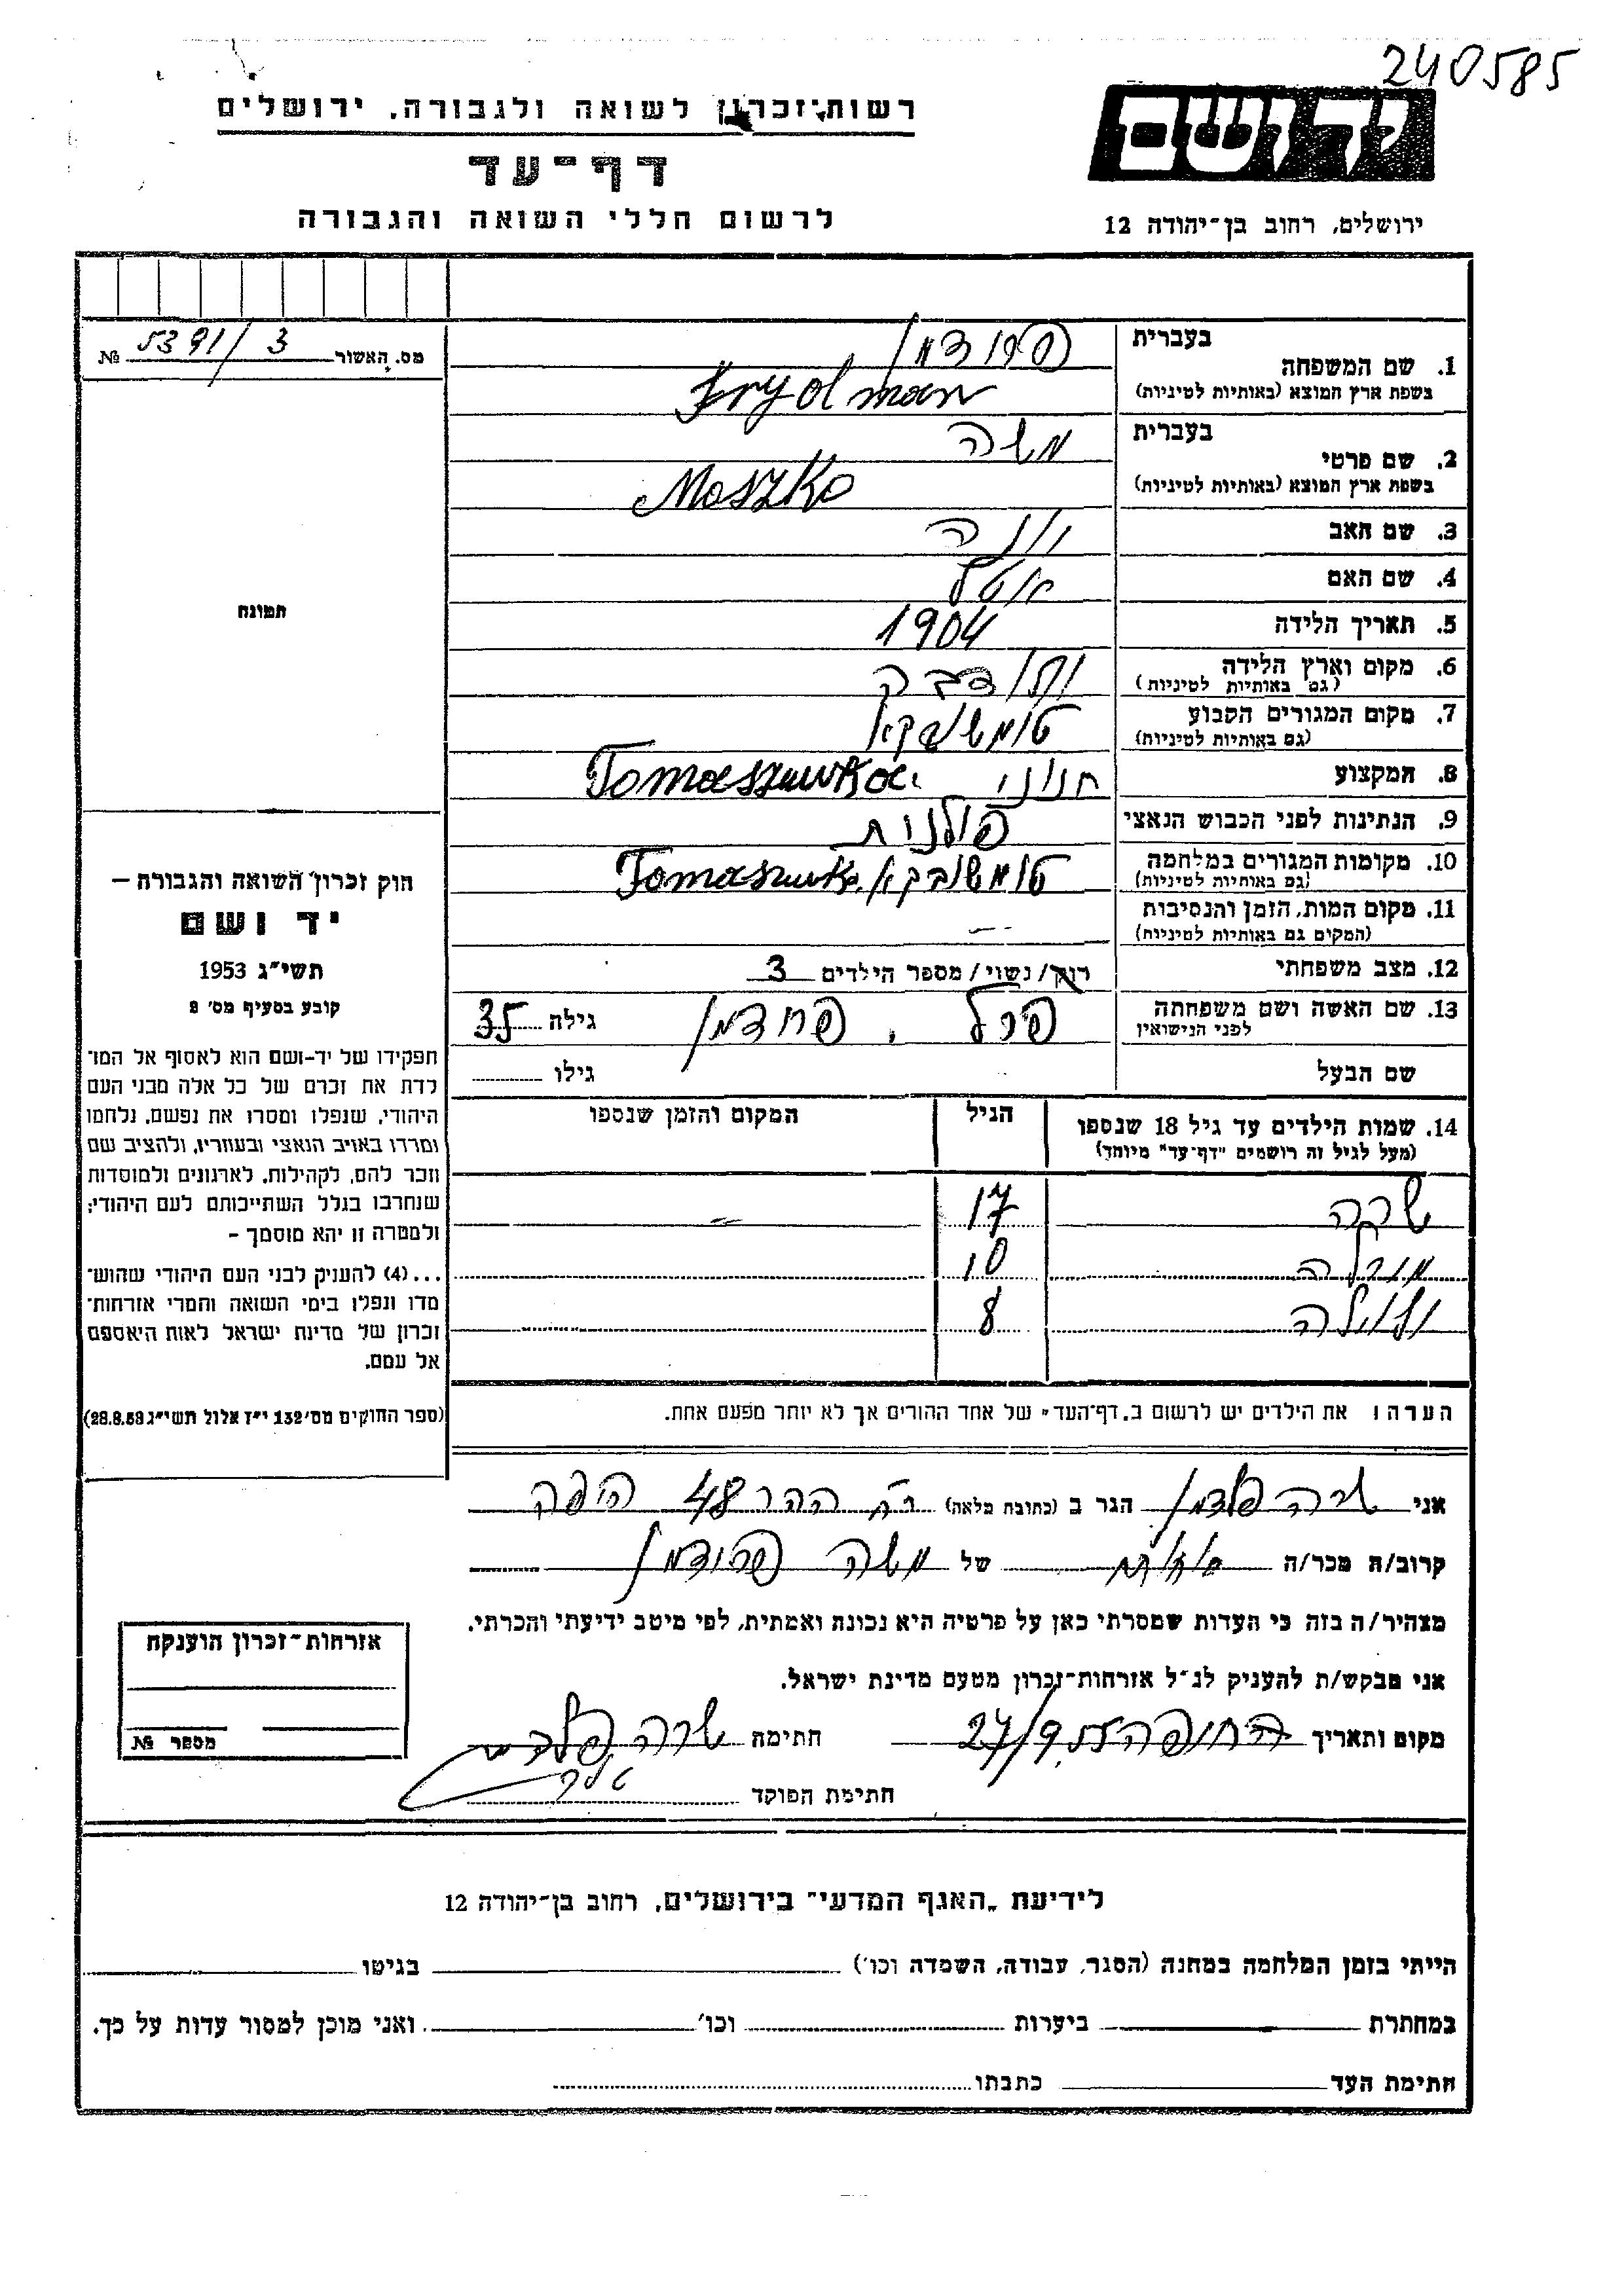 240585
יד ושם
רשות-זכרון לשואה ולגבורה, ירושלים
דף-עד
לרשום חללי השואה והגבורה
ירושלים, רחוב בן-יהודה 12
מס. האשור 5391/3 №
בעברית
1. שם המשפחה
בשפת ארץ המוצא (באותיות לטיניות) Frydman
בעברית משה
2. שם פרטי
בשפת ארץ המוצא (באותיות לטיניות) Moszko
3. שם האב
4. שם האם
5. תאריך הלידה 1904
6. מקום וארץ הלידה
(גם באותיות לטיניות)
7. מקום המגורים הקבוע
(גם באותיות לטיניות)
8. המקצוע חנוני Tomaszuwka
9. הנתינות לפני הכבוש הנאצי פולנית
10. מקומות המגורים במלחמה Tomaszuwka
(גם באותיות לטיניות)
11. מקום המות, הזמן והנסיבות
(המקום גם באותיות לטיניות)
12. מצב משפחתי רווק/ נשוי/ מספר הילדים 3
13. שם האשה ושם משפחתה פרל, גילה 35
לפני הנישואין
שם הבעל גילו
14. שמות הילדים עד גיל 18 שנספו הגיל המקום והזמן שנספו
(מעל לגיל זה רושמים "דף-עד" מיוחד)
שרה 17
10
8
הערה: את הילדים יש לרשום ב"דף-העד" של אחד ההורים אך לא יותר מפעם אחת.
תמונה
חוק זכרון השואה והגבורה —
יד ושם
תשי"ג 1953
קובע בסעיף מס' 2
תפקידו של יד-ושם הוא לאסוף אל המו־
לדת את זכרם של כל אלה מבני העם
היהודי, שנפלו ומסרו את נפשם, נלחמו
ומרדו באויב הנאצי ובעוזריו, ולהציב שם
וזכר להם, לקהילות, לארגונים ולמוסדות
שנחרבו בגלל השתייכותם לעם היהודי;
ולמטרה זו יהא מוסמך -
...(4) להעניק לבני העם היהודי שהוש־
מדו ונפלו בימי השואה והמרי אזרחות־
זכרון של מדינת ישראל לאות היאספם
אל עמם.
(ספר החוקים מס' 132 י"ז אלול תשי"ג 28.8.53)
אני שרה פלדמן הגר ב (כתובת מלאה) 48 חיפה
קרוב/ה מכר/ה של משה פרידמן
מצהיר/ה בזה כי העדות שמסרתי כאן על פרטיה היא נכונה ואמתית, לפי מיטב ידיעתי והכרתי.
אני מבקש/ת להעניק לנ"ל אזרחות-זכרון מטעם מדינת ישראל.
מקום ותאריך 27/9 חתימה שרה פלדמן
חתימת הפוקד
אזרחות-זכרון הוענקה
מספר №
לידיעת "האגף המדעי" בירושלים, רחוב בן-יהודה 12
הייתי בזמן המלחמה במחנה (הסגר, עבודה, השמדה וכו') בגיטו
במחתרת ביערות וכו' ואני מוכן למסור עדות על כך.
חתימת העד כתבתו